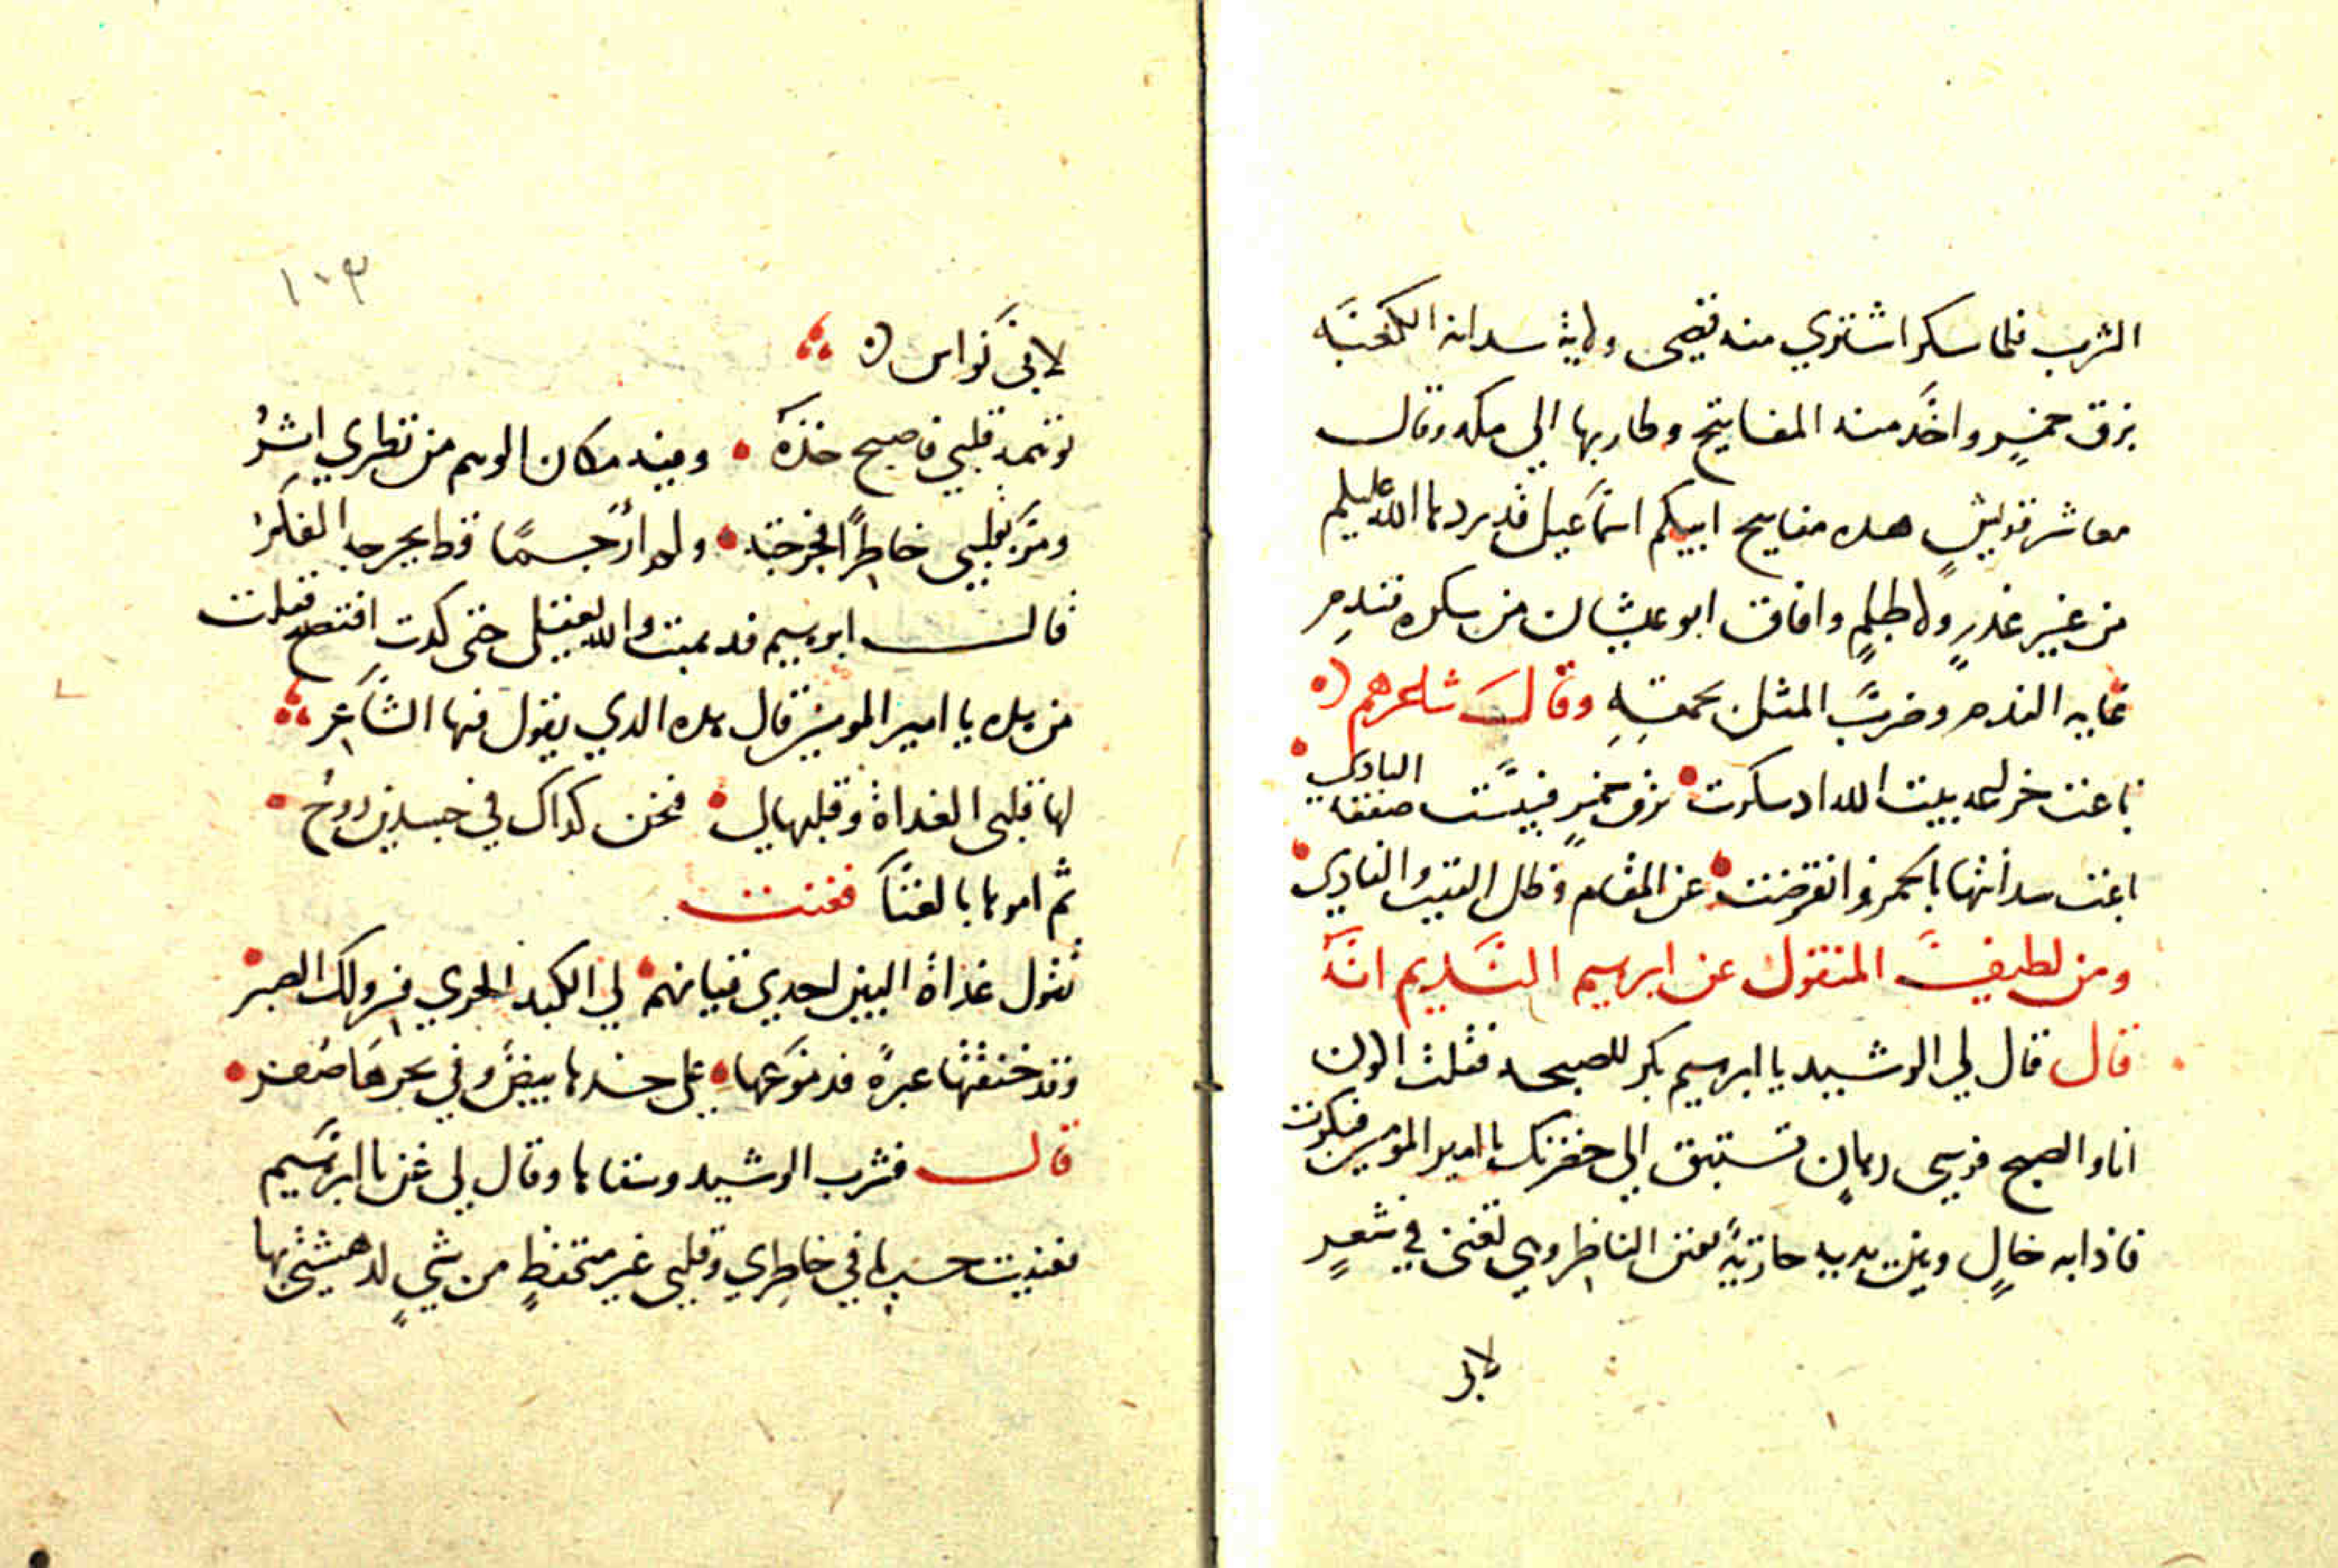 الشرب فلما سكر اشتري منه قصي ولاية سدانه الكعبَه
بزق خمرٍ واخَد منه المفاتيح وطار بها الي مكه وقال
معاشر قريشٍ هده مفاتيح ابيكم اسمَاعيل قد ردها الله عليكم
من غير غدرٍ ولا ظلمٍ وافاق ابو غبشان من سكره فندِم
غايه الندم وضربَ المثل بحمقِهِ وقالَ شاعرهم
باعت خزاعه بيت الله اد سكرت بزق خمرٍ فبئسَت صفقه البادي
باعت سدانتها بالخمر وانقرضت عن المقام وظل البيت والنادي
ومن لطيف المنقول عن ابرهيم النَديم انَه
قال قال لي الرشيد يا ابرهيم بكر للصبحه فقلت اكون
انا والصبح فرسي رهانٍ نستبق الي حضرتك يا امير المومنين فبكرت
فاذا به خالٍ وبين يديه جاريةً تفتن الناظر وهي تغني في شعرٍ
لابي
١٠٣
لابي نُواس
توهمه قلبي فاصبح خدَه وفيه مكان الوهم من نظري اثرُ
ومَر بقلبي خاطرًا فجرحته ولم ارَ جسمًا قط يجرحه الفكرُ
قال ابرهيم قد بهت والله بعقلي حتى كدت افتضح فقلت
من هده يا امير المومنين قال هده الدي يقول فيها الشاعر
لها قلبي الغداة وقلبها لي فنحن كداك في جسدين روحُ
ثم امرها بالغنَا فغنت
تقول غداة البين احدي فتياتهم لي الكبد الحري فسر ولك الصبر
وقد خنقتها عبرةً فدموعها علي خدها بيض وفي نحرها صُفر
قال فشرب الرشيد وسقاها وقال لي غن يا ابرهَيم
فغنيت حسب ما في خاطرِي وقلبي غير متحفظٍ من شيٍ لدهشتي بها